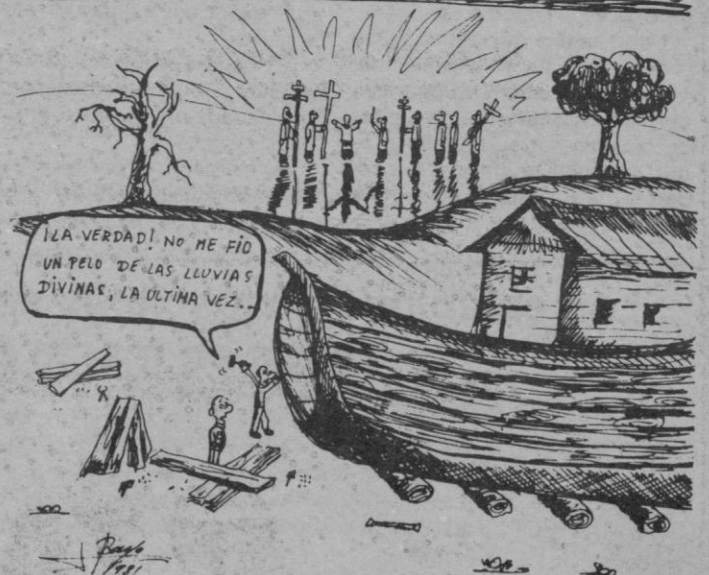 ¡LA VERDAD! NO ME FIO
UN PELO DE LAS LLUVIAS
DIVINAS, LA ULTIMA VEZ...
1981